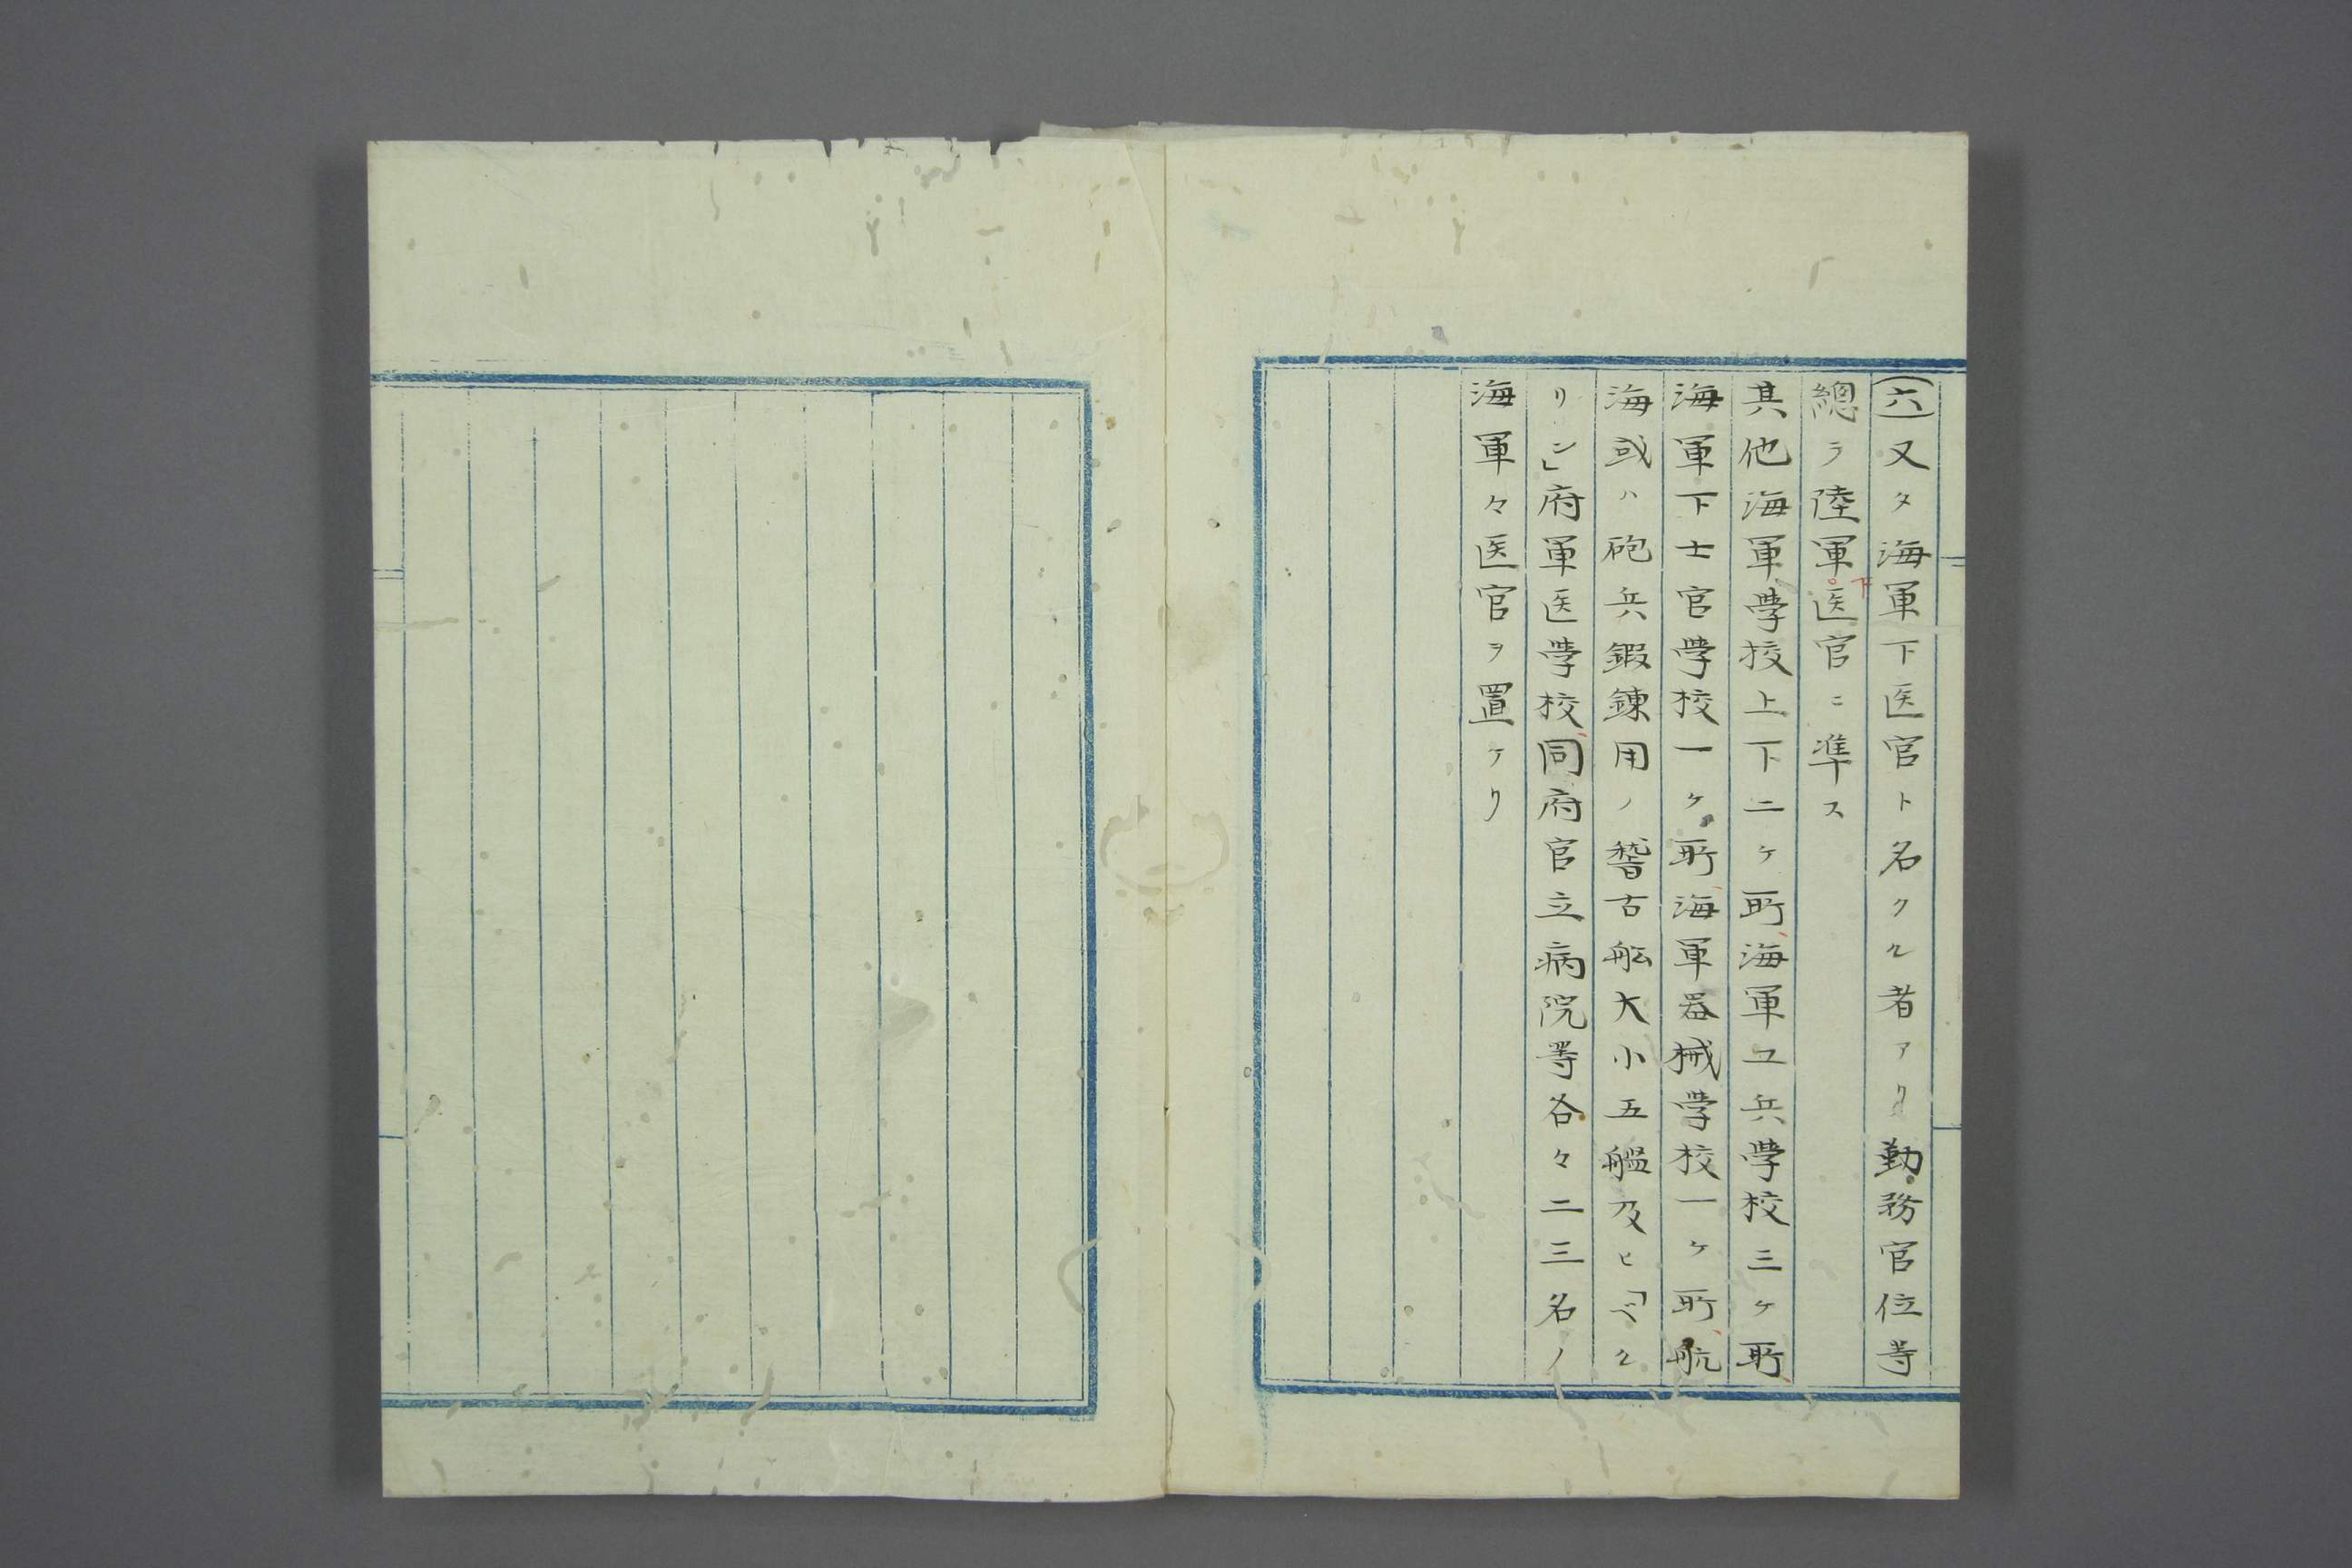 (六)又タ海軍下医官ト名クル者アリ勤務官位等
總ラ陸軍下医官ニ準ス
其他海軍學校上下二ケ所、海軍ユ兵學校三ケ所、
海軍下士官學校一ケ所、海軍器械學校一ケ所、航
海或ハ砲兵鍜錬用ノ稽古舩大小五艦及ヒ「ベル
リン」府軍医學校、同府官立病院等各々二三名ノ
海軍々医官ヲ置ケリ